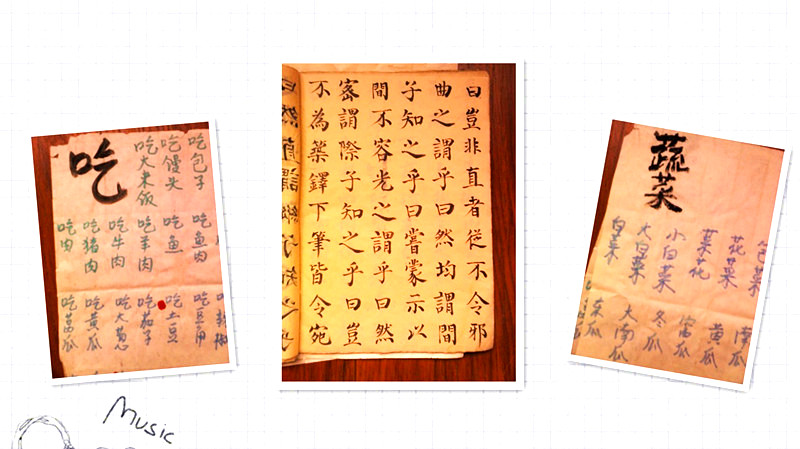 吃
吃包子
吃馒头
吃大米饭
吃鱼肉
吃鱼
吃羊肉
吃牛肉
吃猪肉
吃肉
吃豆角
吃土豆
吃茄子
吃大葱
吃黄瓜
曰豈非直者從不令邪
曲之謂乎曰然均謂間
子知之乎曰嘗蒙示以
間不容光之謂乎曰然
密謂際子知之乎曰豈
不為築鋒下筆皆令宛
蔬菜
花菜
菜花
小白菜
大白菜
白菜
南瓜
黄瓜
冬瓜
大南瓜
Music